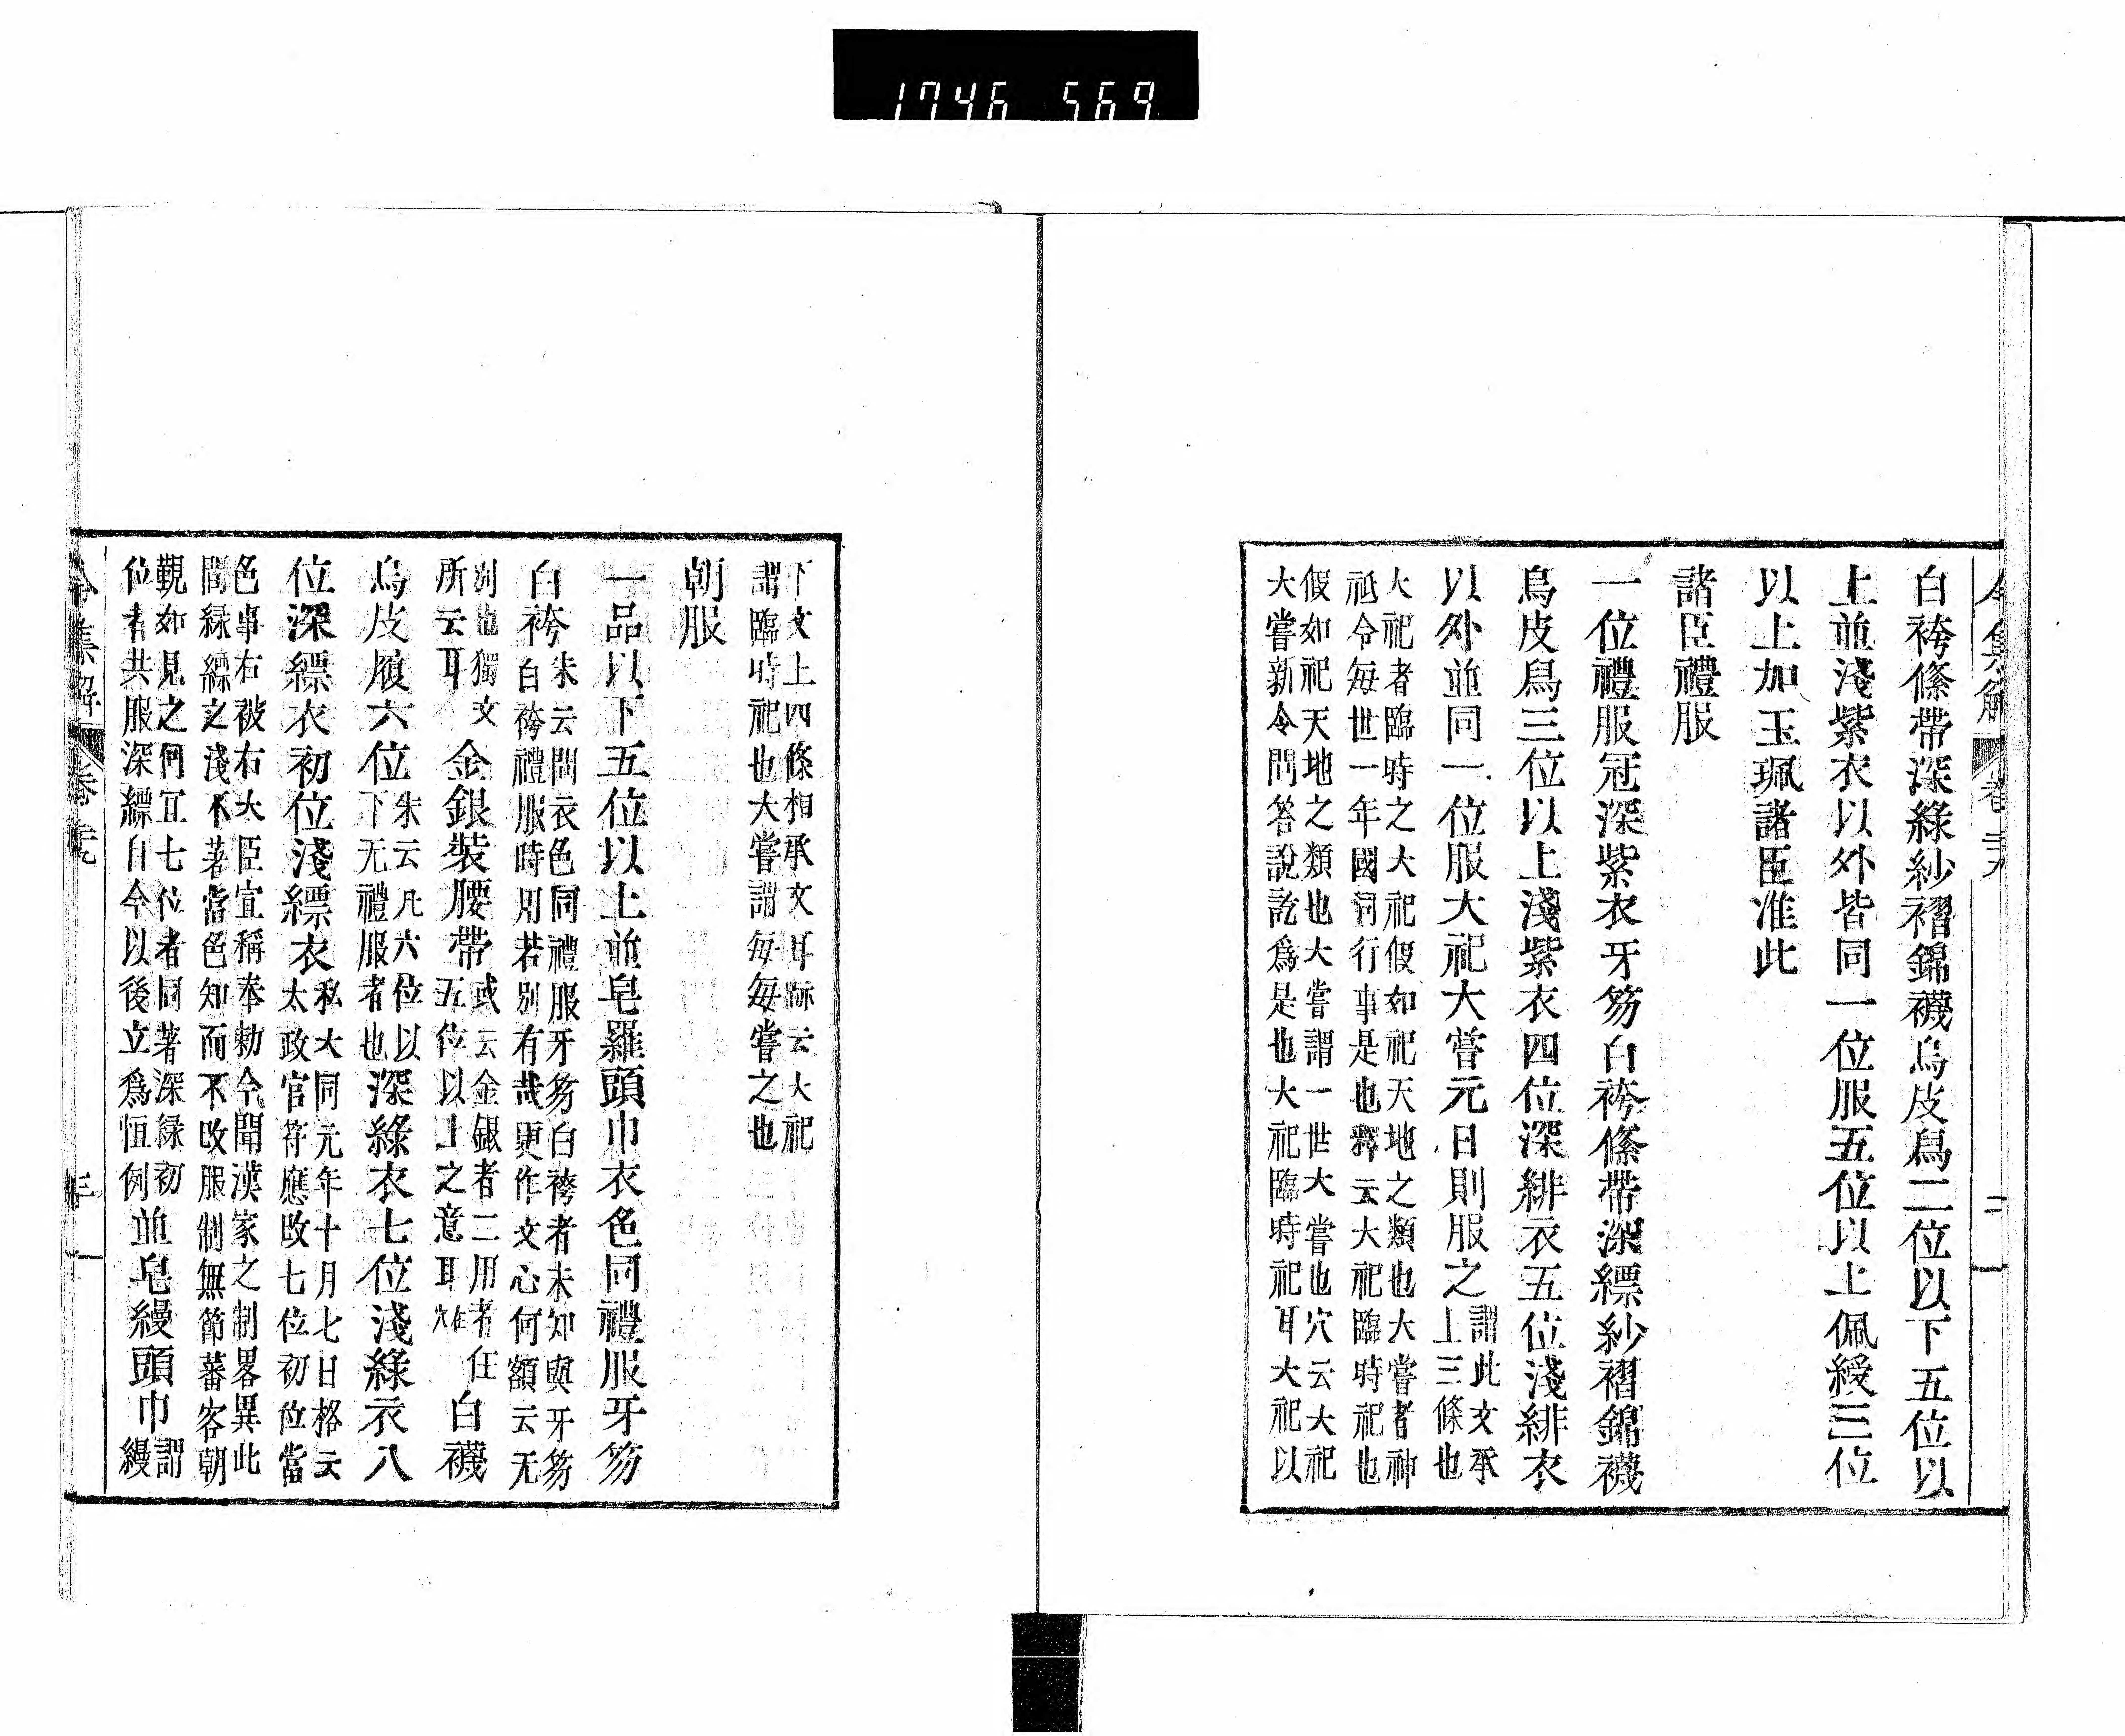 1746 569
令集解 卷二十九 二
白袴條帶深綠紗褶錦襪烏皮舄二位以下五位以
上並淺紫衣以外皆同一位服五位以上佩綬三位
以上加玉珮諸臣准此
諸臣禮服
一位禮服冠深紫衣牙笏白袴條帶深縹紗褶錦襪
烏皮舄三位以上淺紫衣四位深緋衣五位淺緋衣
以外並同一位服大祀大嘗元日則服之
謂此文承
上三條也
大祀者臨時之大祀假如祀天地之類也大嘗者神
祇令每世一年國司行事是也釋云大祀臨時祀也
假如祀天地之類也大嘗謂一世大嘗也穴云大祀
大嘗新令問答說訖爲是也大祀臨時祀耳大祀以
下文上四條相承文耳跡云大祀
謂臨時祀也大嘗謂每每嘗之也
朝服
一品以下五位以上並皂羅頭巾衣色同禮服牙笏
白袴
朱云問衣色同禮服牙笏白袴者未知與牙笏
白袴禮服時用若別有哉更作文心何額云无
別也獨文
所云耳
金銀裝腰帶
或云金銀者二用者任
五位以上之意耳在穴
白襪
烏皮履六位
朱云凡六位以
下无禮服者也
深綠衣七位淺綠衣八
位深縹衣初位淺縹衣
私大同元年十月七日格云
太政官符應改七位初位當
色事右被右大臣宣稱奉勅今聞漢家之制畧異此
間綠縹之淺不著當色知而不改服制無節蕃客朝
觀如見之何宜七位者同著深綠初
位者共服深縹自今以後立爲恒例
並皂縵頭巾
謂
縵
令集解 卷二十九 三